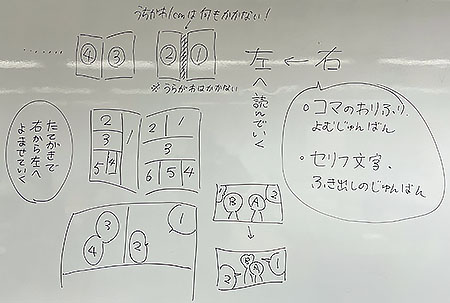 うちがわ1cmは何もかかない!
........ ④ ③ ② ①
※うらがわはかかない
左 ← 右
左へ読んでいく
○コマのわりふり、
よむじゅんばん
・セリフ文字、
ふき出しのじゅんばん
たてがきで
右から左へ
よませていく
2 1
3
5 4
2 1
3
6 5 4
1
2
3
4
B A 2
B A
2 1